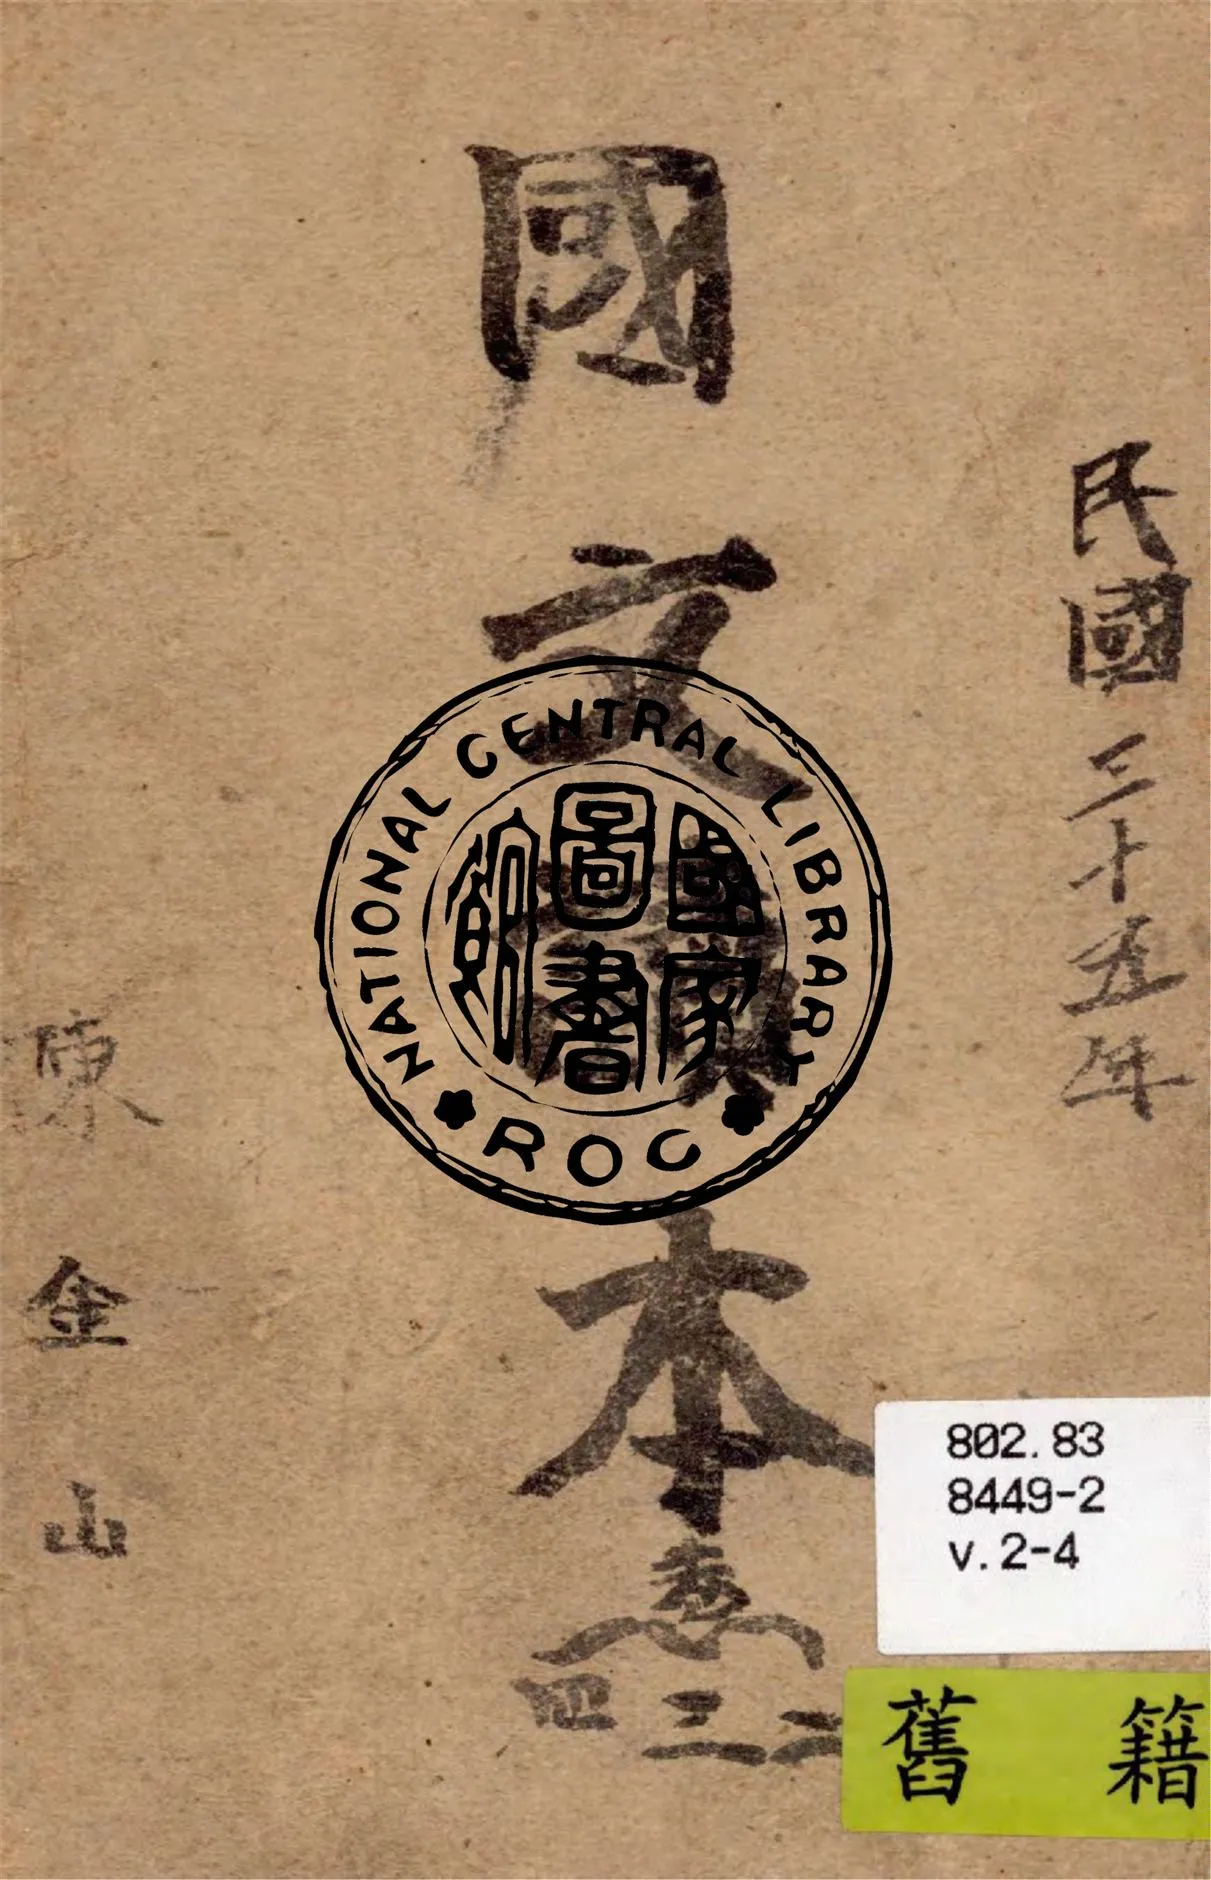 民國三十五年
國文讀本卷
二 三 四
陳金山
NATIONAL CENTRAL LIBRARY
國家圖書館
ROC
802.83
8449-2
v.2-4
舊籍